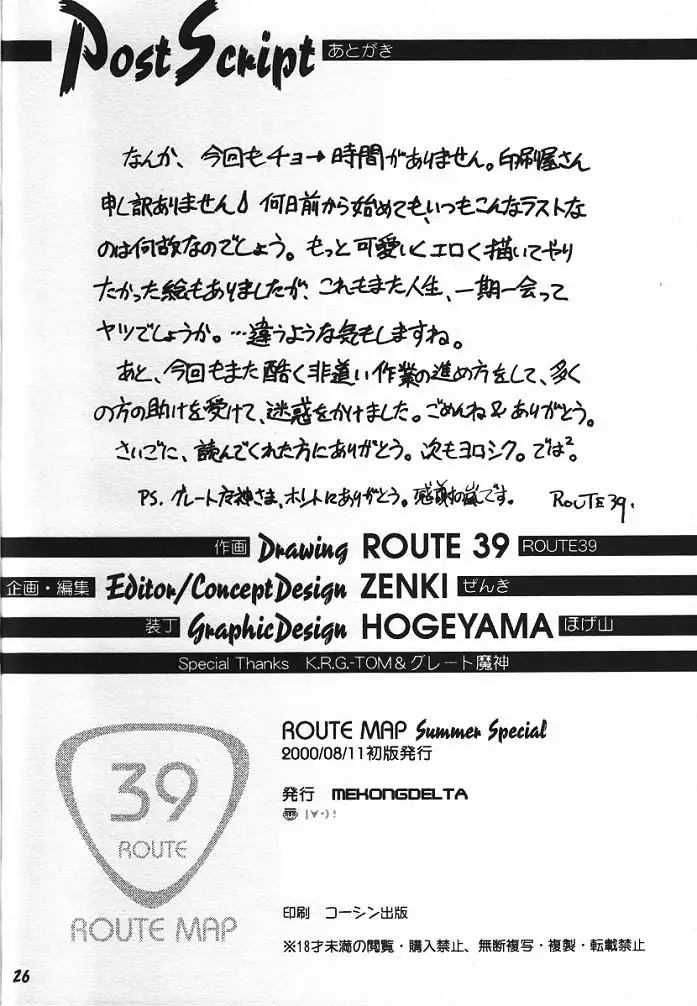 Post Script あとがき
なんか、今回もチョー時間がありません。印刷屋さん
申し訳ありません♪ 何日前から始めても、いつもこんなラストな
のは何故なのでしょう。もっと可愛いくエロく描いてやり
たかった絵もありましたが、これもまた人生、一期一会って
ヤツでしょうか。…違うような気もしますね。
あと、今回もまた酷く非道い作業の進め方をして、多く
の方の助けを受けて、迷惑をかけました。ごめんね&ありがとう。
さいごに、読んでくれた方にありがとう。次もヨロシク。では²。
PS. グレート魔神さま、ホントにありがとう。感謝の嵐です。 ROUTE39.
作画 Drawing ROUTE 39 ROUTE39
企画・編集 Editor/Concept Design ZENKI ぜんき
装丁 Graphic Design HOGEYAMA ほげ山
Special Thanks K.R.G.-TOM&グレート魔神
39
ROUTE
ROUTE MAP
ROUTE MAP Summer Special
2000/08/11初版発行
発行 MEKONGDELTA
|∀・)!
印刷 コーシン出版
※18才未満の閲覧・購入禁止、無断複写・複製・転載禁止
26